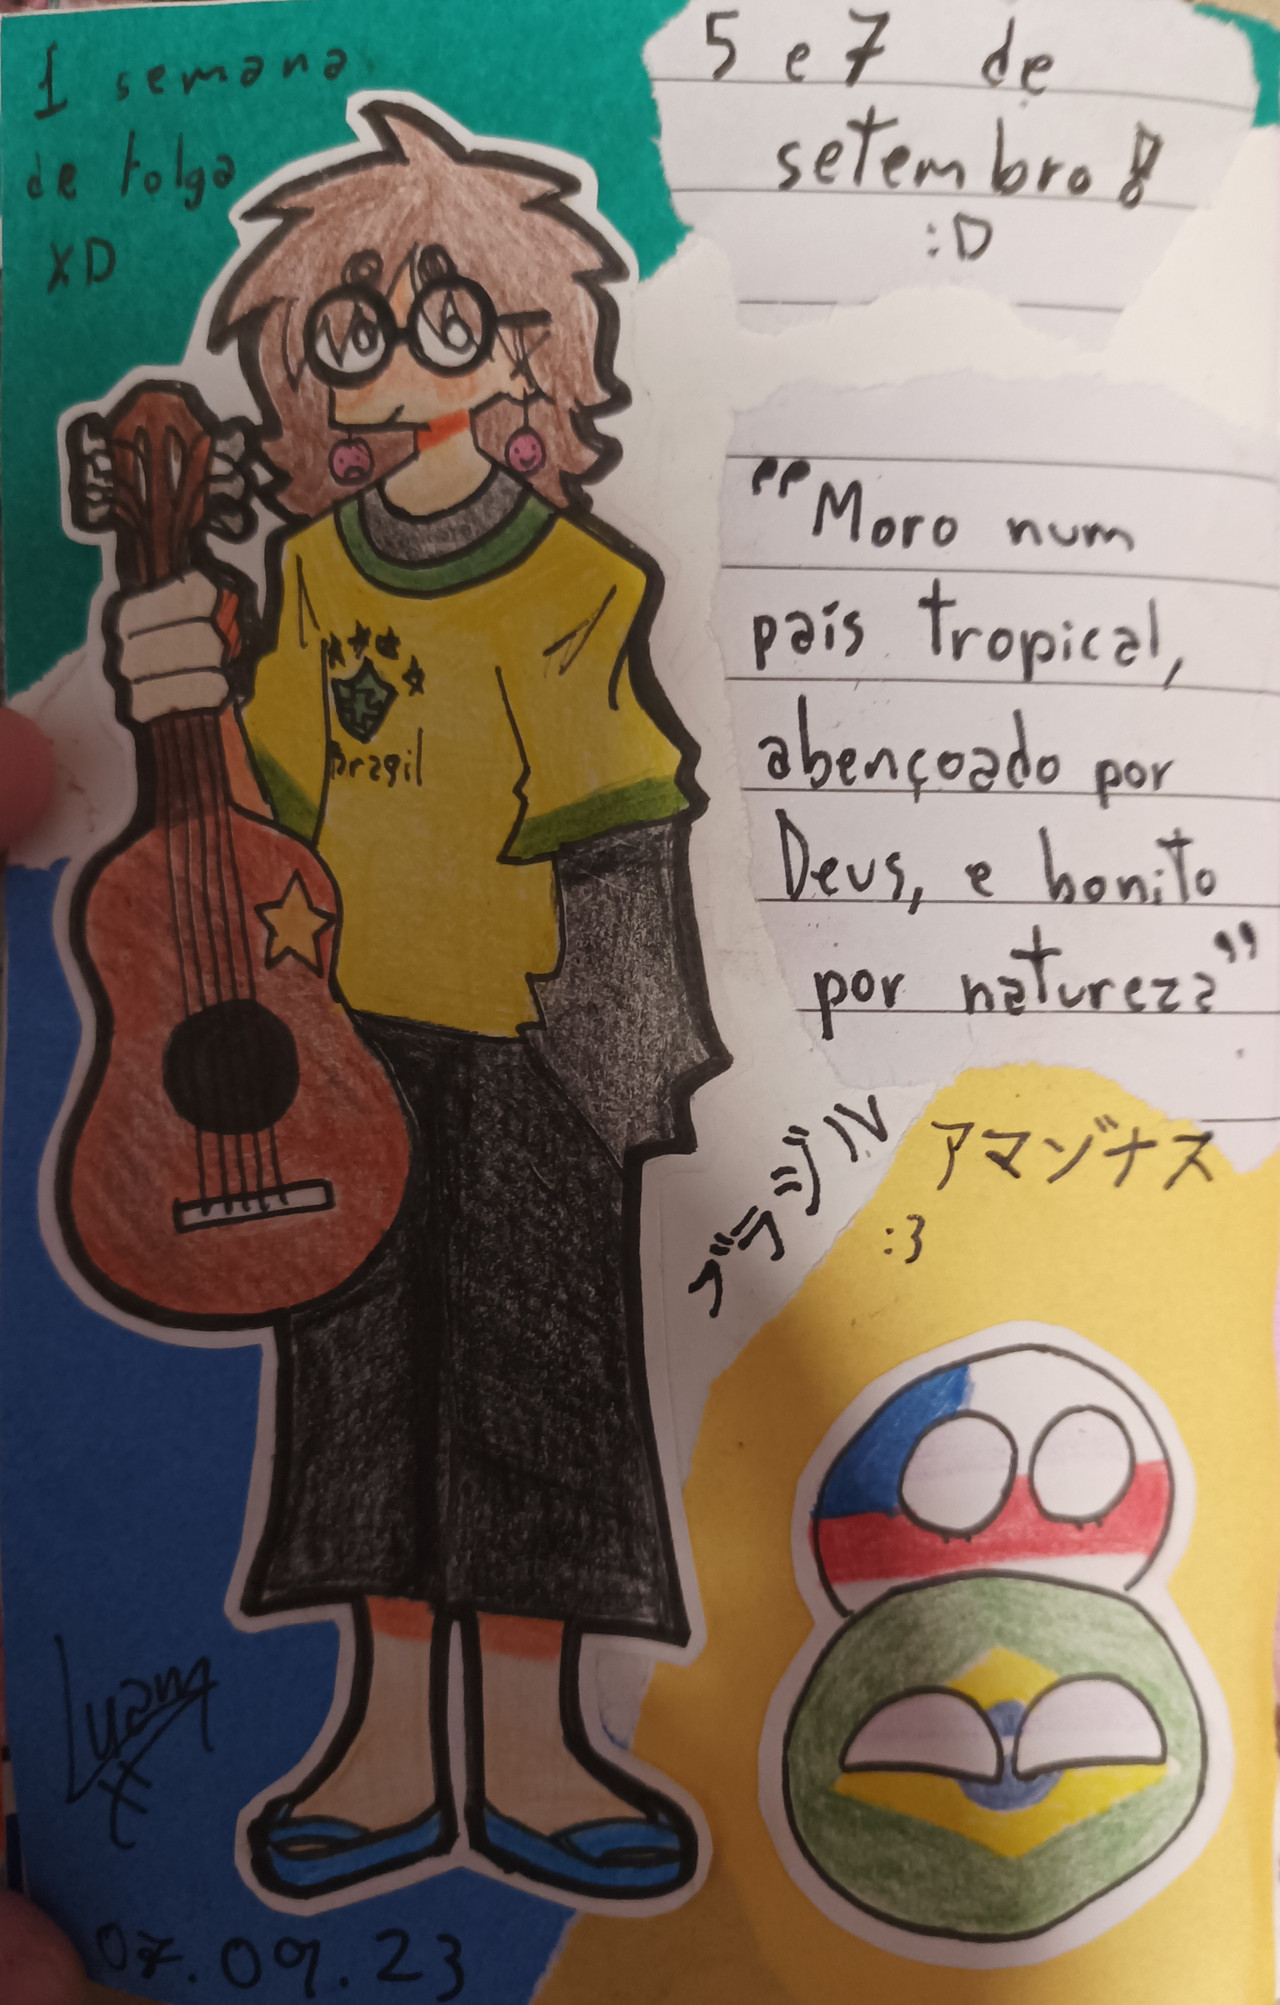 1 semana
de folga
XD
5 e 7 de
setembro!
:D
"Moro num
país tropical,
abençoado por
Deus, e bonito
por natureza"
Brasil
ブラジル
アマゾナス
:3
Luany
07.09.23